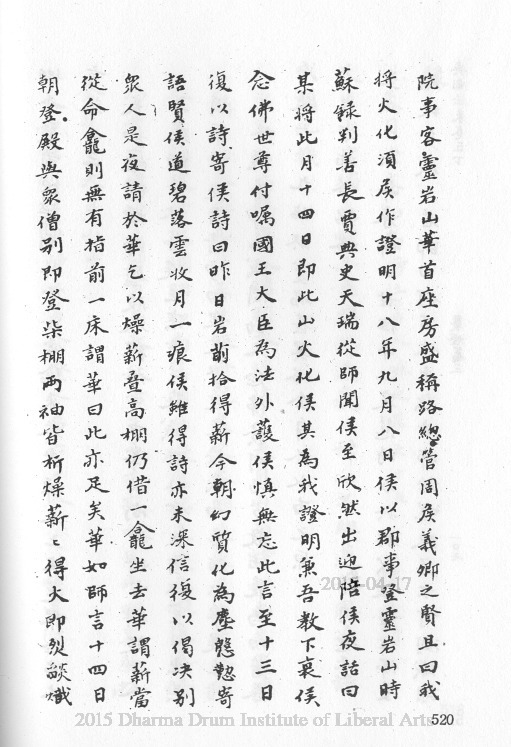 院事客靈岩山華首座房盛稱路總管周侯義卿之賢且曰我
將火化須侯作證明十八年九月八日侯以郡事登靈岩山時
蘇錄判善長賈典史天瑞從師聞侯至欣然出迎陪侯夜話曰
某將此月十四日即此山火化侯其為我證明兼吾教下衰侯
念佛世尊付囑國王大臣為法外護侯慎無忘此言至十三日
復以詩寄侯詩曰昨日岩前拾得薪今朝幻質化為塵慇懃寄
語賢侯道碧落雲收月一痕侯雖得詩亦未深信復以偈決別
眾人是夜請於華乞以燥薪疊高棚仍借一龕坐去華謂薪當
從命龕則無有指前一床謂華曰此亦足矣華如師言十四日
朝登殿與眾僧別即登柴棚兩袖皆析燥薪〻得火即烈燄熾
2015-04-17
2015 Dharma Drum Institute of Liberal Arts
520